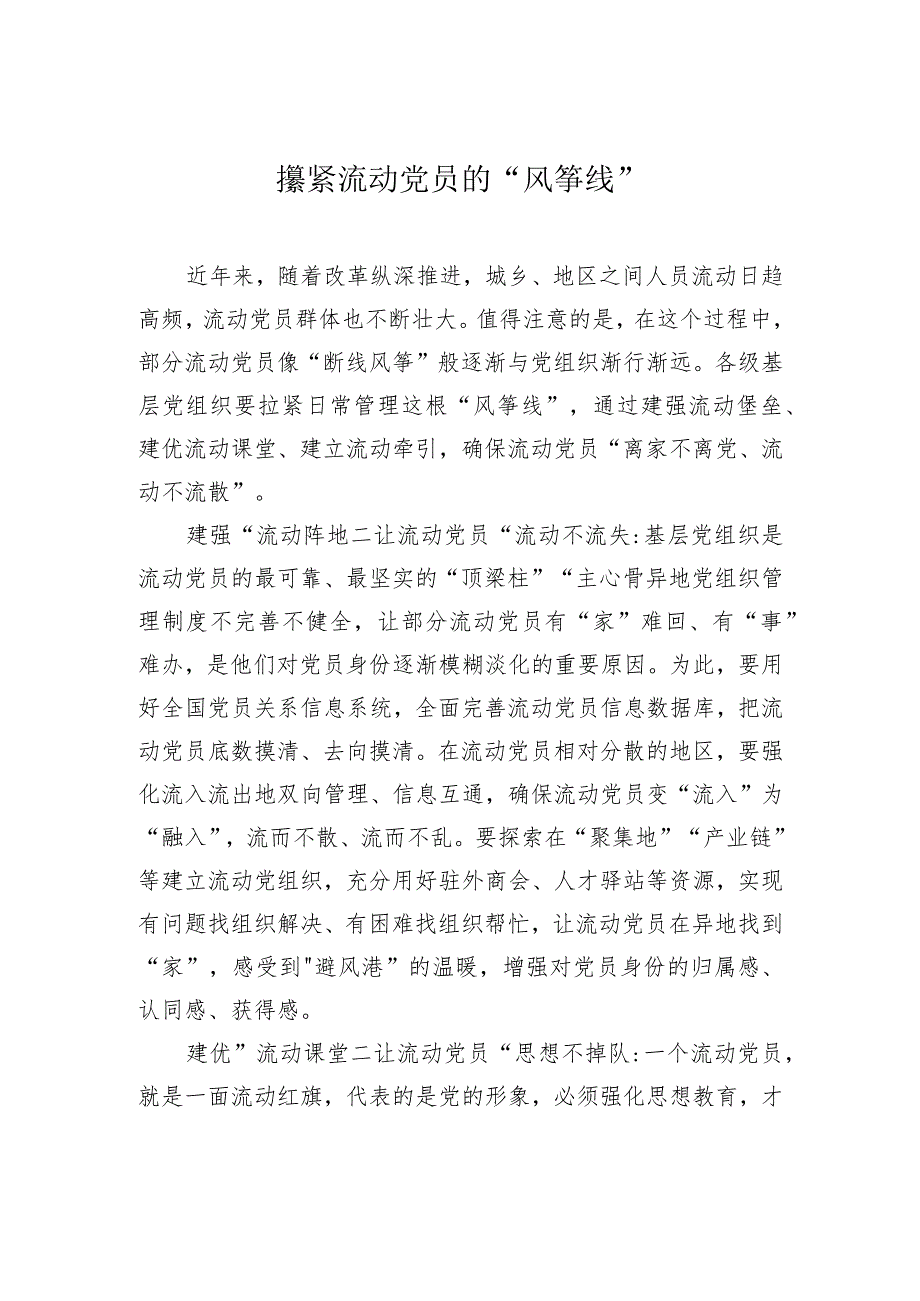 攥紧流动党员的“风筝线”
近年来，随着改革纵深推进，城乡、地区之间人员流动日趋
高频，流动党员群体也不断壮大。值得注意的是，在这个过程中，
部分流动党员像“断线风筝”般逐渐与党组织渐行渐远。各级基
层党组织要拉紧日常管理这根“风筝线”，通过建强流动堡垒、
建优流动课堂、建立流动牵引，确保流动党员“离家不离党、流
动不流散”。
建强“流动阵地二让流动党员“流动不流失:基层党组织是
流动党员的最可靠、最坚实的“顶梁柱”“主心骨异地党组织管
理制度不完善不健全，让部分流动党员有“家”难回、有“事”
难办，是他们对党员身份逐渐模糊淡化的重要原因。为此，要用
好全国党员关系信息系统，全面完善流动党员信息数据库，把流
动党员底数摸清、去向摸清。在流动党员相对分散的地区，要强
化流入流出地双向管理、信息互通，确保流动党员变“流入”为
“融入”，流而不散、流而不乱。要探索在“聚集地”“产业链”
等建立流动党组织，充分用好驻外商会、人才驿站等资源，实现
有问题找组织解决、有困难找组织帮忙，让流动党员在异地找到
“家”，感受到"避风港”的温暖，增强对党员身份的归属感、
认同感、获得感。
建优”流动课堂二让流动党员“思想不掉队:一个流动党员，
就是一面流动红旗，代表的是党的形象，必须强化思想教育，才